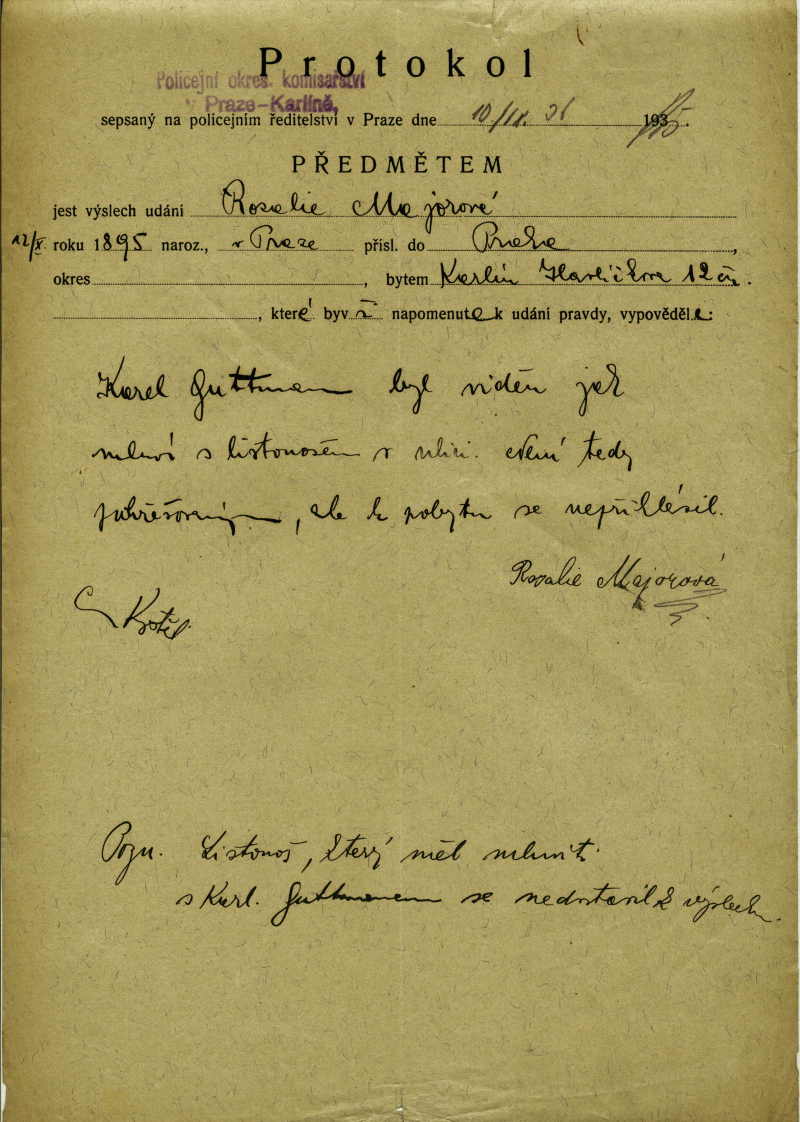 Protokol
Policejní okres. komisařství
v Praze-Karlíně,
sepsaný na policejním ředitelství v Praze dne 193
PŘEDMĚTEM
jest výslech udání Rosalie Majorové
roku 1895 naroz., v Praze přísl. do Praha
okres , bytem Karlín Havlíčkova 12 čn.
, které byvši napomenuta k udání pravdy, vypověděla:
Karel Guttman byl viděn jak
mluví s listonošem v ulici. Není tedy
pohřešovaným, ale k pobytu se nepřihlásil.
Rosalie Majorová
Pozn. Listonoš, který měl mluviti
s Karl. Guttmanem se nedostavil k výslechu.